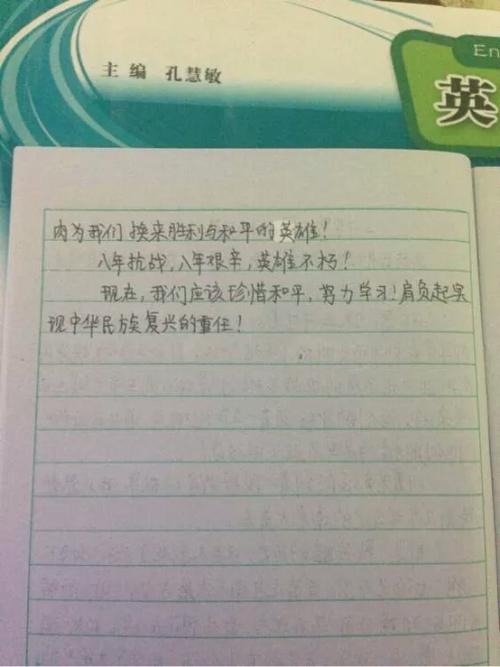 主编 孔慧敏
En
英
为我们换来胜利与和平的英雄！
八年抗战，八年艰辛，英雄不朽！
现在，我们应该珍惜和平，努力学习！肩负起实
现中华民族复兴的重任！